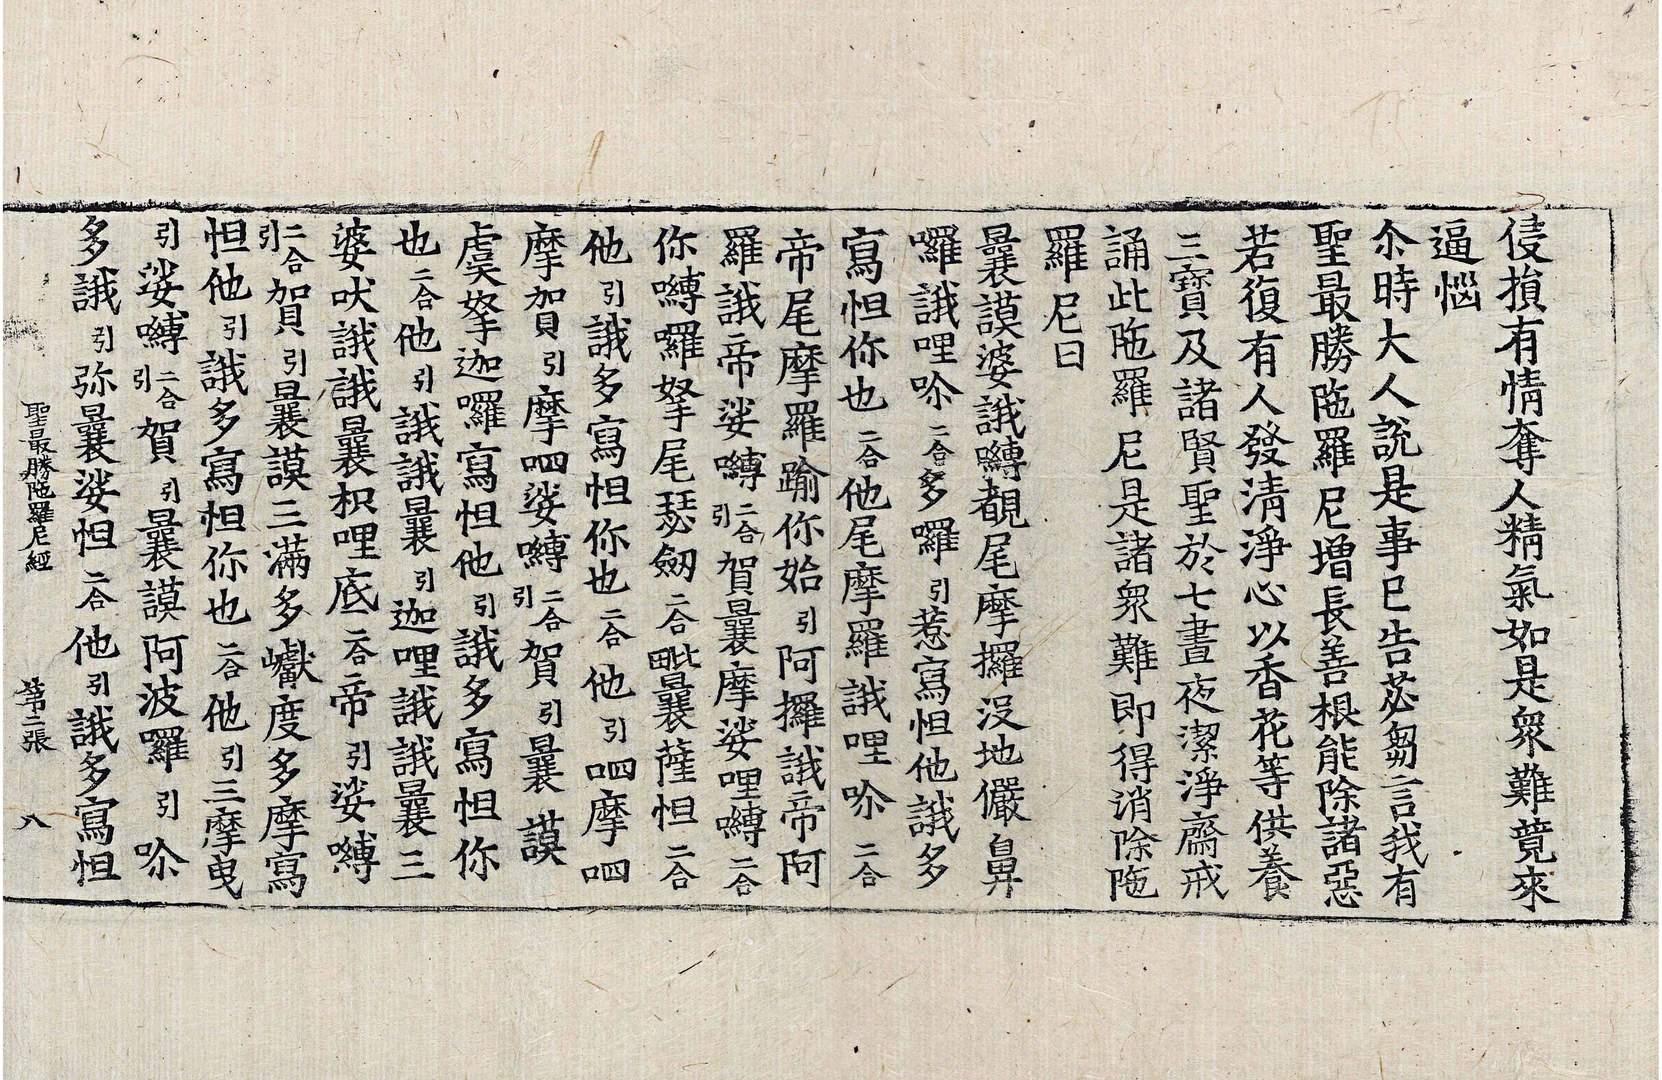 侵損有情奪人精氣如是衆難競來
逼惱
尒時大人說是事已告苾芻言我有
聖最勝陁羅尼增長善根能除諸惡
若復有人發淸淨心以香花等供養
三寶及諸賢聖於七晝夜潔淨齋戒
誦此陁羅尼是諸衆難即得消除陁
羅尼曰
曩謨婆誐嚩覩尾摩攞沒地儼鼻
囉誐哩吤二合多囉引惹寫怛他誐多
寫怛你也二合他尾摩羅誐哩吤二合
帝尾摩羅踰你始引阿攞誐帝阿
羅誐帝娑嚩二合引賀曩摩娑哩嚩二合
你嚩囉拏尾瑟劒二合毗曩薩怛二合
他引誐多寫怛你也二合他引呬摩呬
摩賀引摩呬娑嚩二合引賀引曩謨
虞拏迦囉寫怛他引誐多寫怛你
也二合他引誐誐曩引迦哩誐誐曩三
婆吠誐誐曩枳哩底二合帝引娑嚩
二合引賀引曩謨三滿多巘度多摩寫
怛他引誐多寫怛你也二合他引三摩曳
引娑嚩二合引賀引曩謨阿波囉引吤
多誐引弥曩娑怛二合他引誐多寫怛
聖最勝陁羅尼經 第二張 八